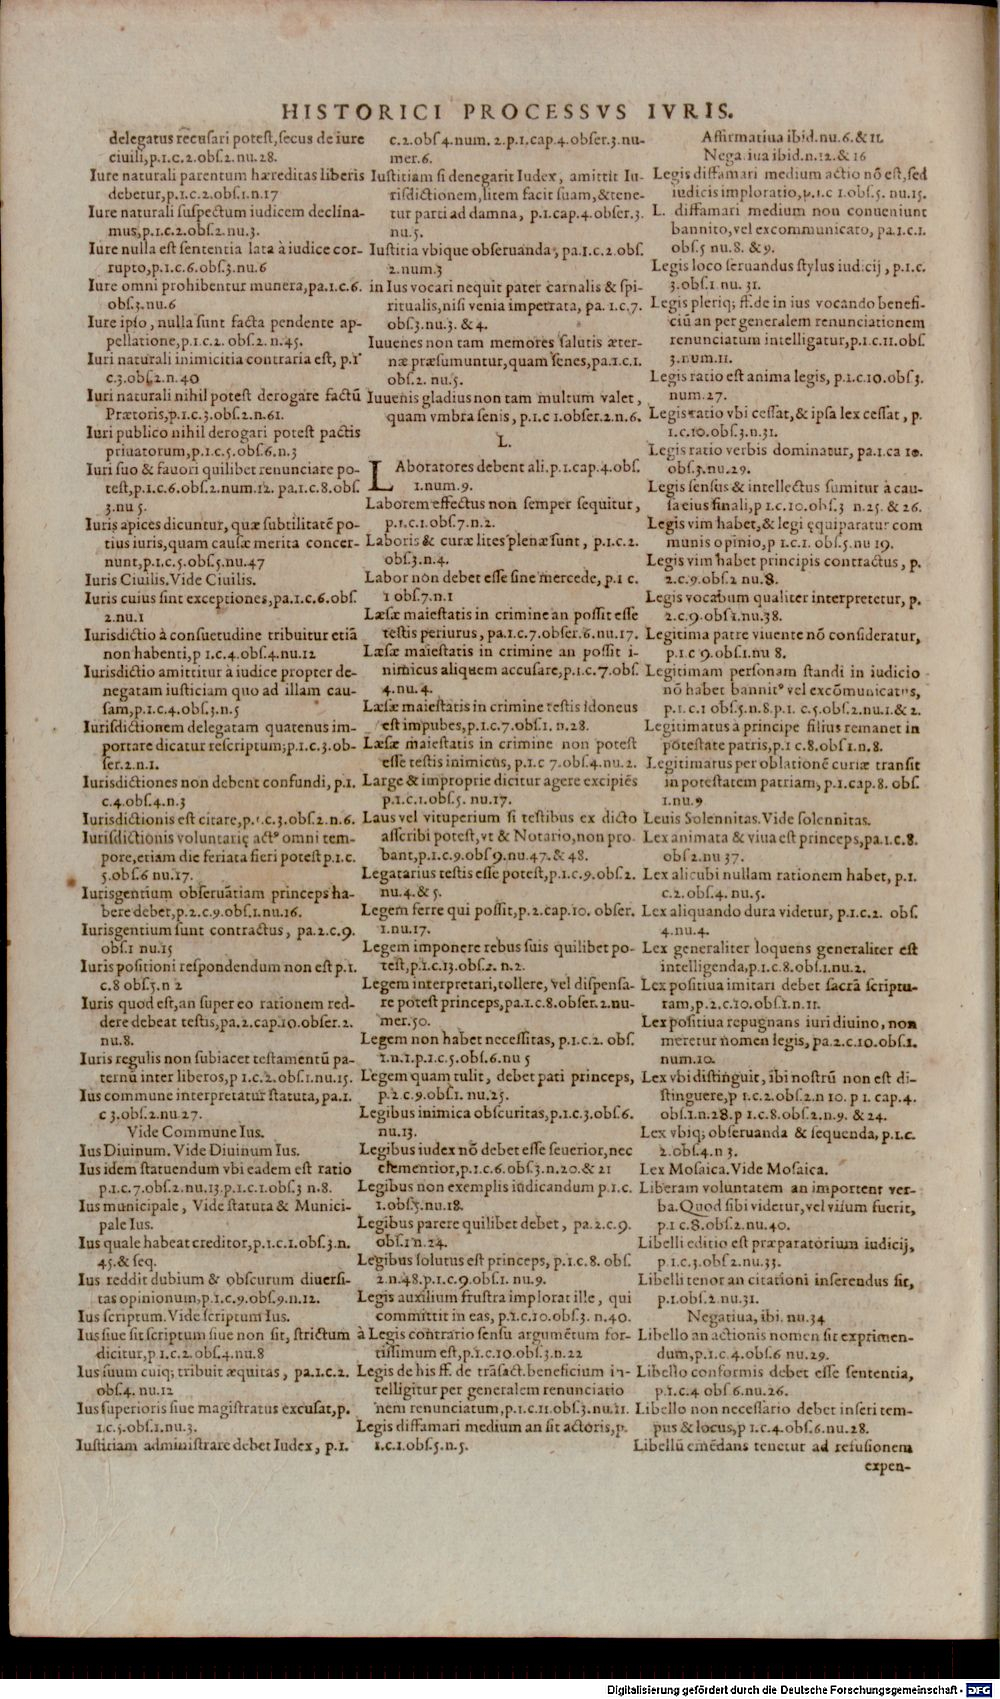 HISTORICI PROCESSVS IVRIS.
delegatus recusari potest, secus de iure
ciuili, p.1.c.2.obs.2.nu.28.
Iure naturali parentum hæreditas liberis
debetur, p.1.c.2.obs.1.n.17
Iure naturali suspectum iudicem declina-
mus, p.1.c.2.obs.2.nu.3.
Iure nulla est sententia lata à iudice cor-
rupto, p.1.c.6.obs.3.nu.6
Iure omni prohibentur munera, pa.1.c.6.
obs.3.nu.6
Iure ipso, nulla sunt facta pendente ap-
pellatione, p.1.c.2. obs.2. n.45.
Iuri naturali inimicitia contraria est, p.1
c.3.obs.2.n.40
Iuri naturali nihil potest derogare factũ
Prætoris, p.1.c.3.obs.2.n.61.
Iuri publico nihil derogari potest pactis
priuatorum, p.1.c.5.obs.6.n.3
Iuri suo & fauori quilibet renunciare po-
test, p.1.c.6.obs.2.num.12. pa.1.c.8.obs.
3.nu 5.
Iuris apices dicuntur, quæ subtilitatẽ po-
tius iuris, quam causæ merita concer-
nunt, p.1.c.5.obs.5.nu.47
Iuris Ciuilis. Vide Ciuilis.
Iuris cuius sint exceptiones, pa.1.c.6.obs.
2.nu.1
Iurisdictio à consuetudine tribuitur etiã
non habenti, p 1.c.4.obs.4.nu.12
Iurisdictio amittitur à iudice propter de-
negatam iusticiam quo ad illam cau-
sam, p.1.c.4.obs.3.n.5
Iurisdictionem delegatam quatenus im-
portare dicatur rescriptum; p.1.c.3.ob-
ser.2.n.1.
Iurisdictiones non debent confundi, p.1.
c.4.obs.4.n.3
Iurisdictionis est citare, p.1.c.3.obs.2.n.6.
Iurisdictionis voluntarię actꝰ omni tem-
pore, etiam die feriata fieri potest p.1.c.
5.obs.6 nu.17.
Iurisgentium obseruãtiam princeps ha-
bere debet, p.2.c.9.obs.1.nu.16.
Iurisgentium sunt contractus, pa.2.c.9.
obs.1 nu.15
Iuris positioni respondendum non est p.1.
c.8 obs.3.n 2
Iuris quod est, an super eo rationem red-
dere debeat testis, pa.2.cap.10.obser.2.
nu.8.
Iuris regulis non subiacet testamentũ pa-
ternũ inter liberos, p 1.c.2.obs.1.nu.15.
Ius commune interpretatur statuta, pa.1.
c 3.obs.2.nu 27.
Vide Commune Ius.
Ius Diuinum. Vide Diuinum Ius.
Ius idem statuendum vbi eadem est ratio
p.1.c.7.obs.2.nu.13.p.1.c.1.obs.3 n.8.
Ius municipale, Vide statuta & Munici-
pale Ius.
Ius quale habeat creditor, p.1.c.1.obs.3.n.
45.& seq.
Ius reddit dubium & obscurum diuersi-
tas opinionum, p.1.c.9.obs.9.n.12.
Ius scriptum. Vide scriptum Ius.
Ius siue sit scriptum siue non sit, strictum
dicitur, p.1.c.2.obs.4.nu.8
Ius suum cuiq; tribuit æquitas, pa.1.c.2.
obs.4. nu.12
Ius superioris siue magistratus excusat, p.
1.c.5.obs.1.nu.3.
Iustitiam administrare debet Iudex, p.1.
c.2.obs 4.num. 2.p.1.cap.4.obser.3.nu-
mer.6.
Iustitiam si denegarit Iudex, amittit Iu-
risdictionem, litem facit suam, & tene-
tur parti ad damna, p.1.cap.4.obser.3.
nu.5.
Iustitia vbique obseruanda, pa.1.c.2.obs.
2.num.3
in Ius vocari nequit pater carnalis & spi-
ritualis, nisi venia impetrata, pa. 1.c.7.
obs.3.nu.3. & 4.
Iuuenes non tam memores salutis æter-
næ præsumuntur, quam senes, pa.1.c.1.
obs.2. nu.5.
Iuuenis gladius non tam multum valet,
quam vmbra senis, p.1.c 1.obser.2.n.6.
L.
LAboratores debent ali. p.1.cap.4.obs.
1.num.9.
Laborem effectus non semper sequitur,
p.1.c.1.obs.7.n.2.
Laboris & curæ lites plenæ sunt, p.1.c.2.
obs.3.n.4.
Labor non debet esse sine mercede, p.1 c.
1 obs.7.n.1
Læsæ maiestatis in crimine an possit esse
testis periurus, pa.1.c.7.obser.6.nu.17.
Læsæ maiestatis in crimine an possit i-
nimicus aliquem accusare, p.1.c.7.obs.
4.nu.4.
Læsæ maiestatis in crimine testis idoneus
est impubes, p.1.c.7.obs.1. n.28.
Læsæ maiestatis in crimine non potest
esse testis inimicus, p.1.c 7.obs.4.nu.2.
Large & improprie dicitur agere excipiẽs
p.1.c.1.obs.5. nu.17.
Laus vel vituperium si testibus ex dicto
asscribi potest, vt & Notario, non pro-
bant, p.1.c.9.obs 9.nu.47.& 48.
Legatarius testis esse potest, p.1.c.9.obs.2.
nu.4.& 5.
Legem ferre qui possit, p.2.cap.10. obser.
1.nu.17.
Legem imponere rebus suis quilibet po-
test, p.1.c.13.obs.2. n.2.
Legem interpretari, tollere, vel dispensa-
re potest princeps, pa.1.c.8.obser.2.nu-
mer.50.
Legem non habet necessitas, p.1.c.2. obs.
1.n.1.p.1.c.5.obs.6.nu 5
Legem quam tulit, debet pati princeps,
p.2 c 9.obs.1. nu.25.
Legibus inimica obscuritas, p.1.c.3.obs.6.
nu.13.
Legibus iudex nõ debet esse seuerior, nec
clementior, p.1.c.6.obs.3.n.20.& 21
Legibus non exemplis iudicandum p.1.c.
1.obs.5.nu.18.
Legibus parere quilibet debet, pa.2.c.9.
obs.1 n.24.
Legibus solutus est princeps, p.1.c.8. obs.
2.n.48.p.1.c.9.obs.1. nu.9.
Legis auxilium frustra implorat ille, qui
committit in eas, p.1.c.10.obs.3. n.40.
à Legis contrario sensu argumẽtum for-
tissimum est, p.1.c.10.obs.3.n.22
Legis de his ff. de trãsact. beneficium in-
telligitur per generalem renunciatio
nem renunciatum, p.1.c.11.obs.3.nu.11.
Legis diffamari medium an sit actoris, p.
1.c.1.obs.5.n.5.
Affirmatiua ibid.nu.6.& 11.
Negatiua ibid.n.12.& 16
Legis diffamari medium actio nõ est, sed
iudicis imploratio, p.1.c 1.obs.5. nu.15.
L. diffamari medium non conueniunt
bannito, vel excommunicato, pa.1.c.1.
obs.5 nu.8. & 9.
Legis loco seruandus stylus iudicij, p.1.c.
3.obs.1.nu. 31.
Legis pleriq; ff. de in ius vocando benefi-
ciũ an per generalem renunciationem
renunciatum intelligatur, p.1.c.11.obs
3.num.11.
Legis ratio est anima legis, p.1.c.10.obs 3.
num.27.
Legis ratio vbi cessat, & ipsa lex cessat, p.
1.c.10.obs.3.n.31.
Legis ratio verbis dominatur, pa.1.ca 10.
obs.3.nu.29.
Legis sensus & intellectus sumitur à cau-
sa eius finali, p 1.c.10.obs.3 n.25.& 26.
Legis vim habet, & legi ęquiparatur com
munis opinio, p 1.c.1. obs.5.nu 19.
Legis vim habet principis contractus, p.
2.c.9.obs.2 nu.8.
Legis vocabum qualiter interpretetur, p.
2.c.9.obs 1.nu.38.
Legitima patre viuente nõ consideratur,
p.1.c 9.obs.1.nu 8.
Legitimam personam standi in iudicio
nõ habet bannitꝰ vel excõmunicatus,
p.1.c.1 obs.5.n.8.p.1. c.5.obs.2.nu.1.& 2.
Legitimatus à principe filius remanet in
potestate patris, p.1 c.8.obs 1.n.8.
Legitimatus per oblationẽ curiæ transit
in potestatem patriam, p.1.cap.8. obs.
1.nu.9
Leuis Solennitas. Vide solennitas.
Lex animata & viua est princeps, pa.1.c.8.
obs 2.nu 37.
Lex alicubi nullam rationem habet, p.1.
c.2.obs.4. nu.5.
Lex aliquando dura videtur, p.1.c.2. obs.
4.nu.4.
Lex generaliter loquens generaliter est
intelligenda, p.1.c.8.obs.1.nu.2.
Lex positiua imitari debet sacrã scriptu-
ram, p.2.c.10.obs.1.n.11.
Lex positiua repugnans iuri diuino, non
meretur nomen legis, pa.2.c.10.obs.1.
num.10.
Lex vbi distinguit, ibi nostrũ non est di-
stinguere, p 1.c.2.obs.2.n 10. p 1. cap.4.
obs.1.n.28.p 1.c.8.obs.2.n.9. & 24.
Lex vbiq; obseruanda & sequenda, p.1.c.
2.obs.4.n 3.
Lex Mosaica. Vide Mosaica.
Liberam voluntatem an importent ver-
ba. Quod sibi videtur, vel visum fuerit,
p.1 c.8.obs.2.nu.40.
Libelli editio est præparatorium iudicij,
p.1.c.3.obs 2.nu.33.
Libelli tenor an citationi inserendus sit,
p.1.obs.2.nu.31.
Negatiua, ibi. nu.34
Libello an actionis nomen sit exprimen-
dum, p.1.c.4.obs.6 nu.29.
Libello conformis debet esse sententia,
p.1.c.4 obs 6.nu.26.
Libello non necessario debet inseri tem-
pus & locus, p 1.c.4.obs.6.nu.28.
Libellũ emẽdans tenetur ad refusionem
expen-
Digitalisierung gefördert durch die Deutsche Forschungsgemeinschaft - DFG